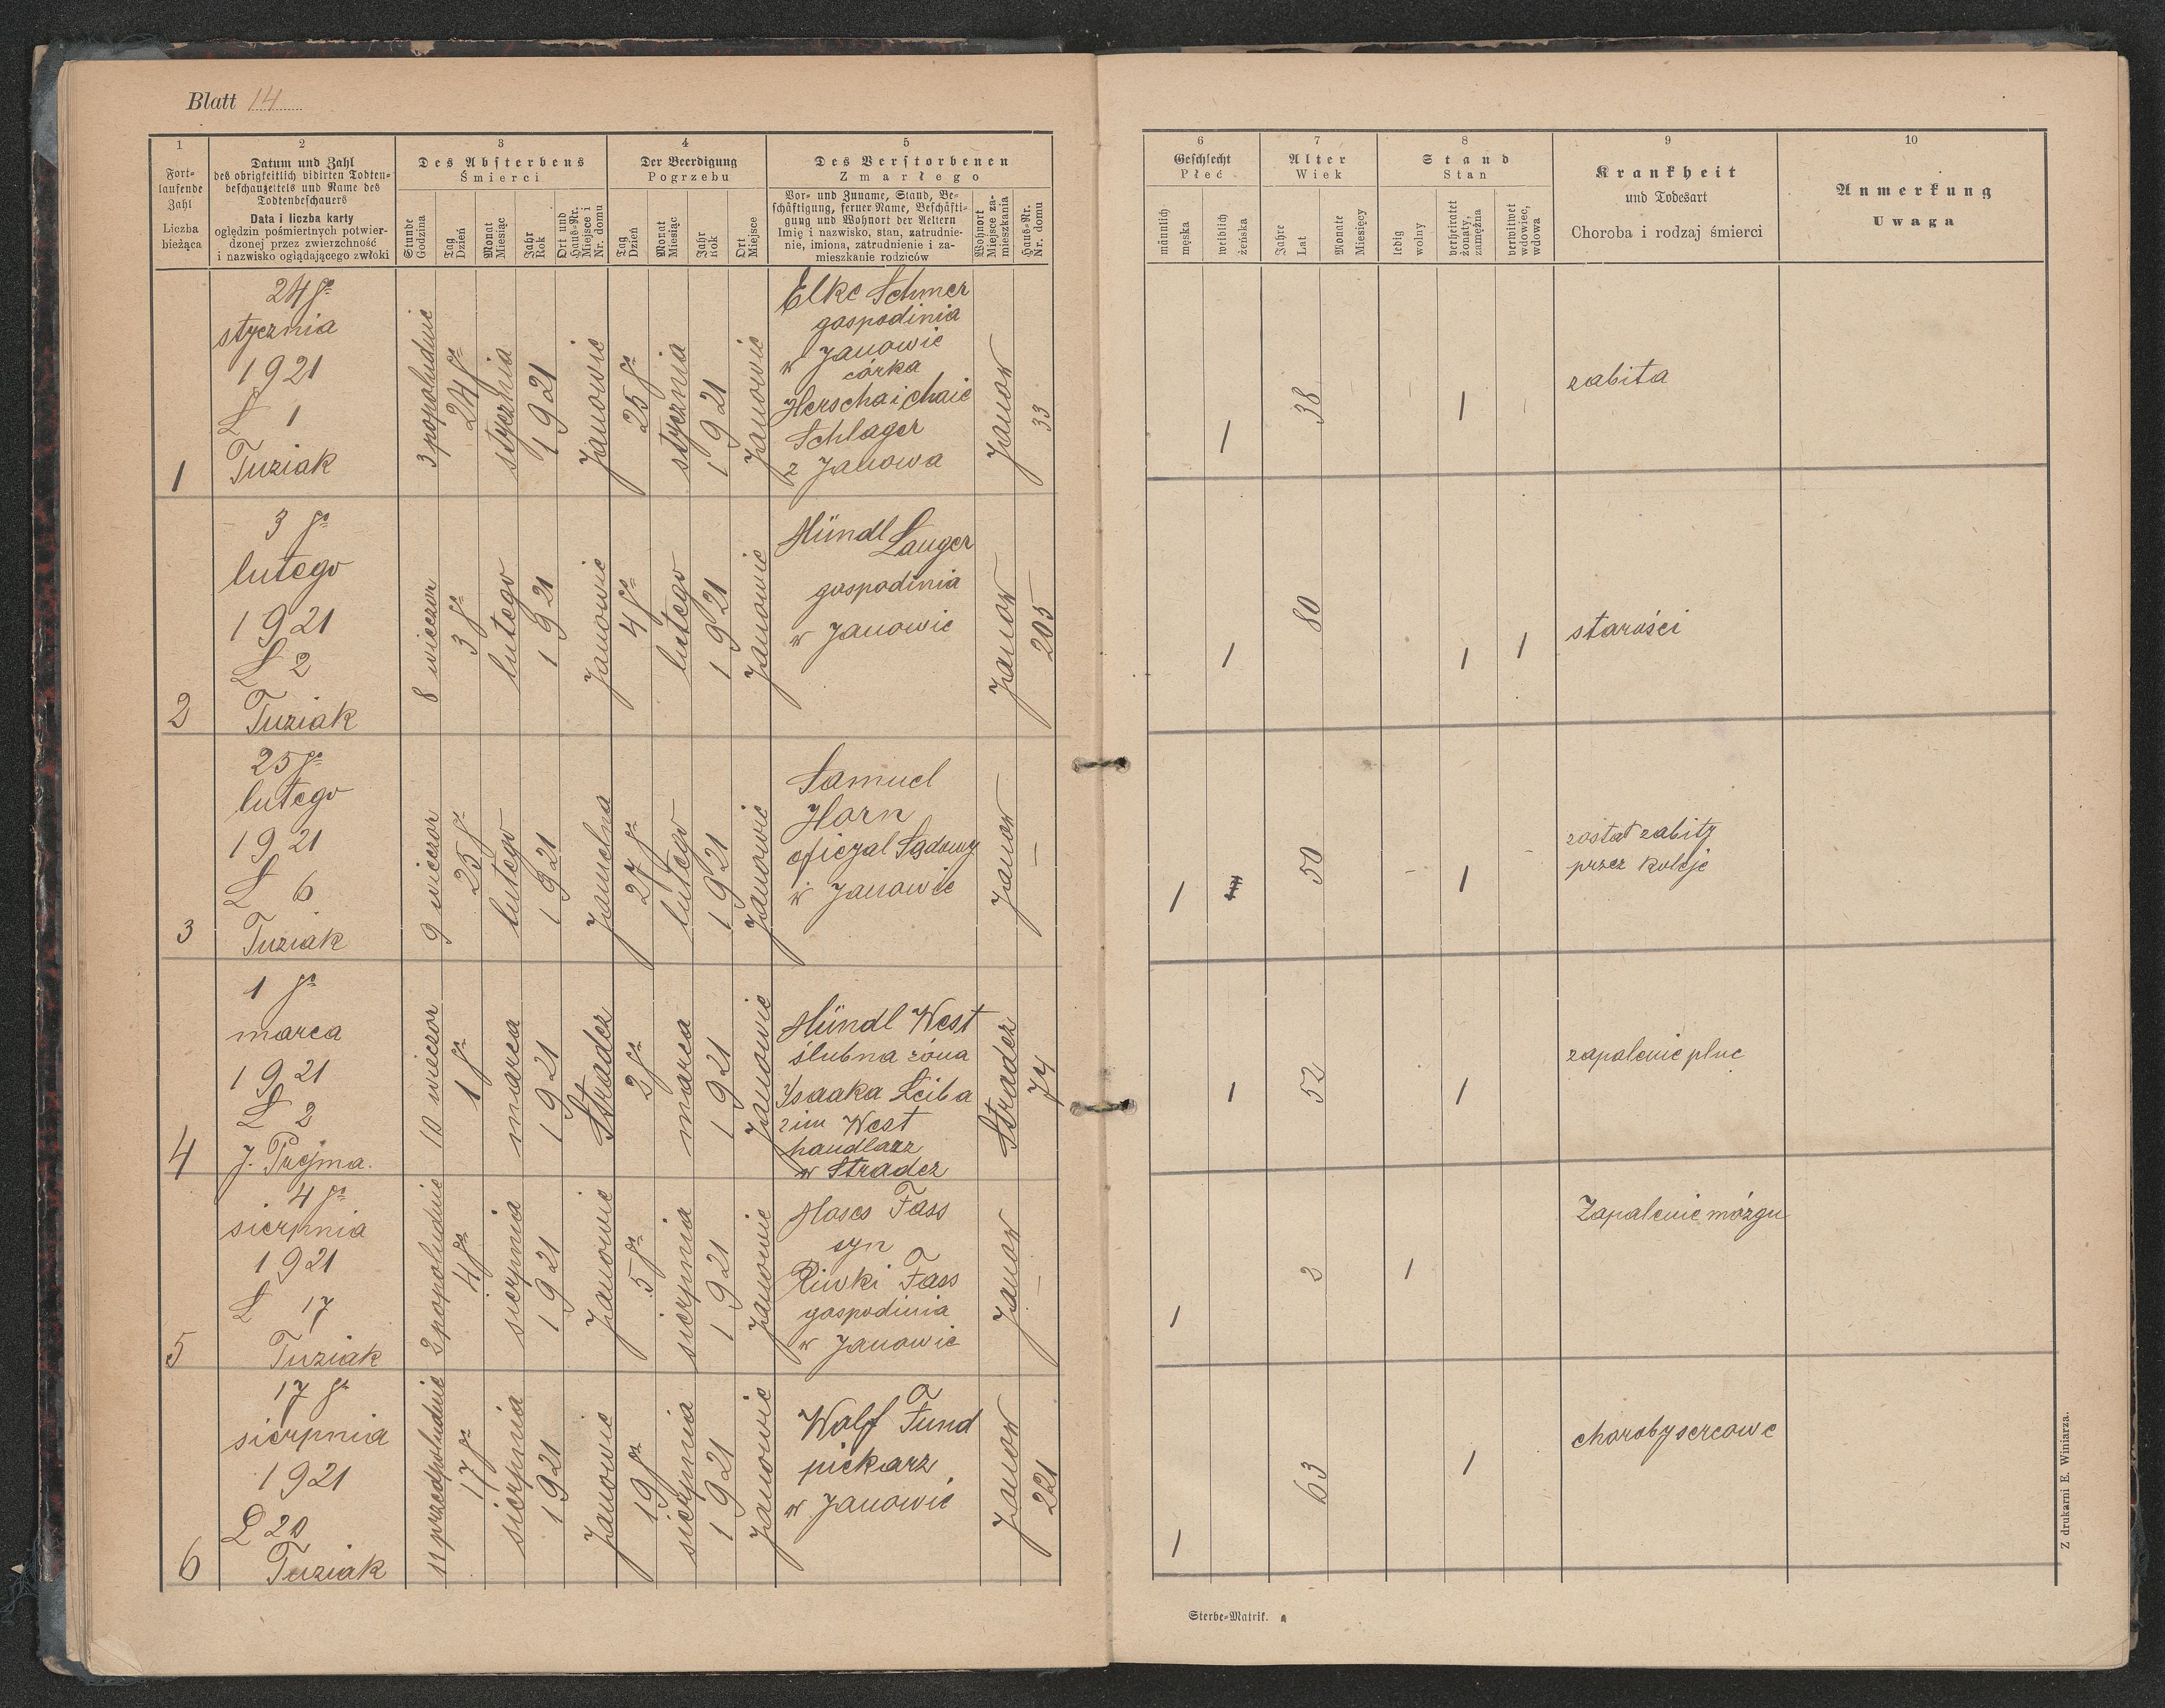 Blatt 14
1
Fort-
laufende
Zahl
Liczba
bieżąca
2
Datum und Zahl
des obrigkeitlich vidirten Todten-
beschauzettels und Name des
Todtenbeschauers
Data i liczba karty
oględzin pośmiertnych potwier-
dzonej przez zwierzchność
i nazwisko oglądającego zwłoki
3
Des Absterbens
Śmierci
Stunde
Godzina
Tag
Dzień
Monat
Miesiąc
Jahr
Rok
Ort und
Haus-Nr.
Miejsce i
Nr. domu
4
Der Beerdigung
Pogrzebu
Tag
Dzień
Monat
Miesiąc
Jahr
Rok
Ort
Miejsce
5
Des Verstorbenen
Zmarłego
Vor- und Zuname, Stand, Be-
schäftigung, ferner Name, Beschäfti-
gung und Wohnort der Aeltern
Imię i nazwisko, stan, zatrudnie-
nie, imiona, zatrudnienie i za-
mieszkanie rodziców
Wohnort
Miejsce za-
mieszkania
Haus-Nr.
Nr. domu
6
Geschlecht
Płeć
männlich
męska
weiblich
żeńska
7
Alter
Wiek
Jahre
Lat
Monate
Miesięcy
8
Stand
Stan
ledig
wolny
verheiratet
żonaty,
zamężna
verwitwet
wdowiec,
wdowa
9
Krankheit
und Todesart
Choroba i rodzaj śmierci
10
Anmerkung
Uwaga
1
24 go
stycznia
1921
L 1
Tuziak
3 popołudnie
24 go
stycznia
1921
Janowie
25 go
stycznia
1921
Janowie
Elke Schmer
gospodinia
w Janowie
córka
Herscha i Chaie
Schlager
z Janowa
Janow
33
1
38
1
zabita
2
3 go
lutego
1921
L 2
Tuziak
8 wieczor
3 go
lutego
1921
Janowie
4 go
lutego
1921
Janowie
Mündl Lauger
gospodinia
w Janowie
Janow
205
1
80
1
1
starości
3
25 go
lutego
1921
L 6
Tuziak
9 wieczor
25 go
lutego
1921
Jamelna
27 go
lutego
1921
Janowie
Samuel
Horn
oficzal Sądowy
w Janowie
Janow
–
1
50
1
został zabity
przez koleje
4
1 go
marca
1921
L 2
J. Prejma.
10 wieczor
1 go
marca
1921
Stradcz
2 go
marca
1921
Janowie
Mündl West
ślubna żona
Isaaka Leiba
zim West
handlarz
w Stradcz
Stradcz
74
1
52
1
zapalenie pluc
5
4 go
sierpnia
1921
L 17
Tuziak
2 popołudnie
4 go
sierpnia
1921
Janowie
5 go
sierpnia
1921
Janowie
Moses Fass
syn
Riwki Fass
gospodinia
w Janowie
Janow
–
1
2
1
Zapalenie mózgu
6
17 go
sierpnia
1921
L 20
Tuziak
11 przedpołudnie
17 go
sierpnia
1921
Janowie
19 go
sierpnia
1921
Janowie
Wolf Fund
piekarz
w Janowie
Janow
221
1
63
1
choroby sercowe
Sterbe-Matrik.
Z drukarni E. Winiarza.